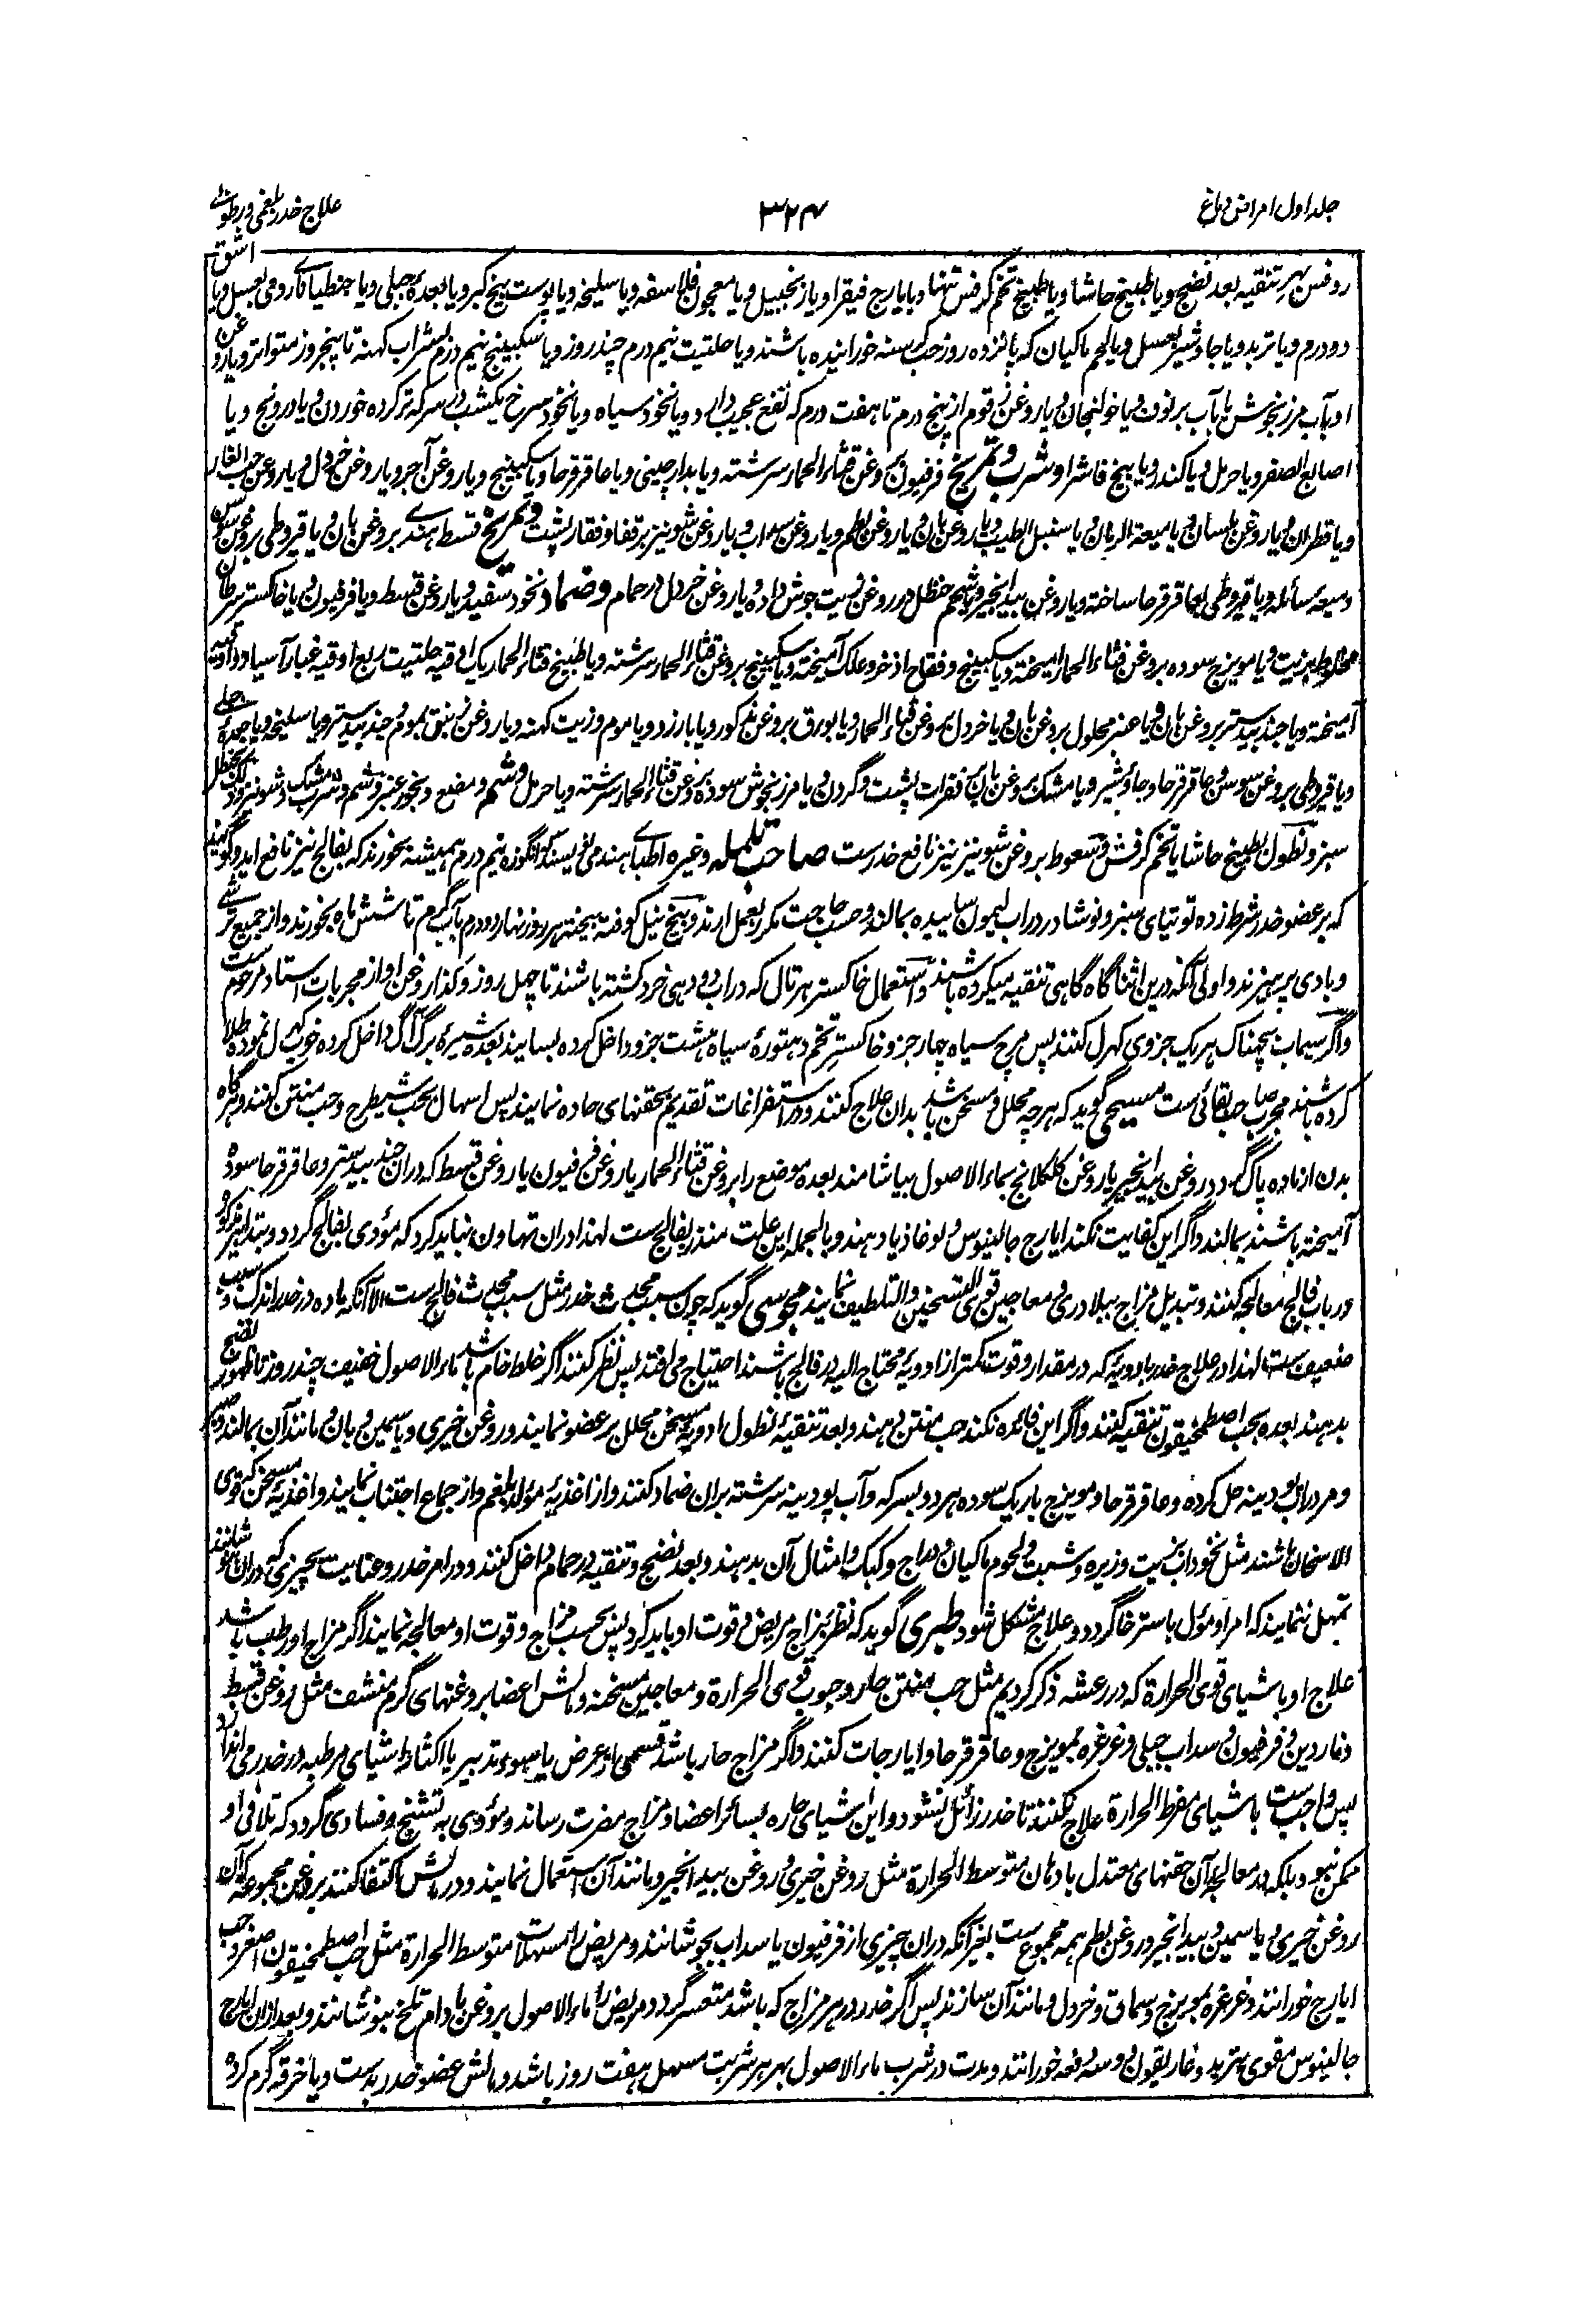 جلد اول امراض دماغ
۳۲۴
علاج خدر بلغمی و رطوبتی
روفس بهر تنقیه بعد نضج و یا طبیخ حاشا و یا طبیخ تخم کرفس تنها و یا بایارج فیقرا و یا زنجبیل و یا معجون فلاسفه و یا سلیخه و یا پوست بیخ کبر و یا بعده جبلی و یا جنطیانای رومی بعسل و یا اشق
دو درم و یا تربد و یا جاوشیر بعسل و یا لحم ماکیان که پانزده روز حب گرسنه خورانیده باشند و یا حلتیت نیم درم چند روز و یا سکبینج نیم درم بشراب کهنه تا پنج روز متواتر و یا روغن
او بآب مرزنجوش یا بآب برنوف و یا خولنجان و یا روغن زقوم از پنج درم تا هفت درم که نفع عجیب دارد و یا نخود سیاه و یا نخود سرخ یکشب در سرکه تر کرده خوردن و یا درونج و یا
اصابع الصفر و یا حرمل و یا کندر و یا بیخ فاشرا و شرب و تمریخ فرفیون بروغن قثاء الحمار سرشته و یا بدارچینی و یا عاقرقرحا و یا سکبینج و یا روغن آجر و یا روغن خردل و یا روغن حب الغار
و یا قطران و یا روغن بلسان و یا میعة الرمان و یا سنبل الطیب و یا روغن بان و یا روغن بطم و یا روغن سداب و یا روغن شونیز بر قفا و فقار پشت و تمریخ قسط هندی بروغن بان و یا قیروطی بروغن سوسن
و میعه سائله و یا قیروطی بعاقرقرحا ساخته و یا روغن بیدانجیر و شحم حنظل در روغن زیت جوش داده و یا روغن خردل در حمام و ضماد نخود سفید و یا روغن قسط و یا فرفیون و یا خاکستر سرطان
مخلوط بزیت و یا مویزج سوده بروغن قثاء الحمار آمیخته و یا سکبینج و فقاح اذخر و علک آمیخته و یا سکبینج بروغن قثاء الحمار سرشته و یا طبیخ قثاء الحمار یک اوقیه حلتیت ربع اوقیه غبار آسیا دو اوقیه
آمیخته و یا جندبیدستر بروغن بان و یا عنبر محلول بروغن بان و یا خردل بروغن قثاء الحمار و یا بورق بروغن مذکور و یا بارزد و یا موم و زیت کهنه و یا روغن زنبق بموم و جندبیدستر و یا سلیخه و یا جعده جبلی
و یا قیروطی بروغن سوسن و عاقرقرحا و جاوشیر و یا مشک بروغن بان بر فقرات پشت و گردن و یا مرزنجوش سوده بروغن قثاء الحمار سرشته و یا حرمل و شم و مضغ و بخور عنبر و شم و شرب مشک و شونیز و ورق حنظل
سبز و نطول بطبیخ حاشا یا تخم کرفس و سعوط بروغن شونیز نیز نافع خدرست صاحب تکمله و غیره اطبای هند می نویسند که انگوزه نیم درم همیشه بخورند که بفالج نیز نافع آید و گویند
که بر عضو خدر شرط زده توتیای سبز و نوشادر در آب لیمون سائیده بمالند و حسب حاجت مکرر بعمل آرند و بیخ نیل کوفته بیخته هر روز نهار دو درم بآب گرم تا شش ماه بخورند و از جمیع ترشی
و بادی پرهیزند و اولی آنکه درین اثنا گاه گاهی تنقیه میکرده باشند و استعمال خاکستر هرتال که در آب و دهی خرد کشته باشند تا چهل روز و کذا روغن او از مجربات استاد مرحوم ست
و اگر سیماب بچهناک هر یک جزوی کهرل کنند پس مرچ سیاه چهار جزو خاکستر تخم دهتوره سیاه هشت جزو داخل کرده بسایند بعده شیره برگ آگ داخل کرده خوب کهرل نموده طلا
کرده باشند مجرب صاحب بقائی ست مسیحی گوید که هر چه محلل و مسخن باشد بدان علاج کنند و در استفراغات تقدیم بحقنهای حاده نمایند پس اسهال بحب شیطرج و حب منتن کنند و هرگاه
بدن از ماده پاک گردد روغن بیدانجیر یا روغن کلکلانج بماء الاصول بیاشامند بعده موضع را بروغن قثاء الحمار یا روغن فرفیون یا روغن قسط که دران جندبیدستر و عاقرقرحا سوده
آمیخته باشند بمالند و اگر این کفایت نکند ایارج جالینوس و لوغاذیا دهند و بالجمله این علت منذر بفالج ست لهذا دران تهاون نباید کرد که مؤدی بفالج گردد و بتدابیر مذکوره
در باب فالج معالجه کنند و تبدیل مزاج ببلادری و معاجین قوی التسخین و التلطیف نمایند مجوسی گوید که چون سبب محدث خدر مثل سبب محدث فالج ست الا آنکه ماده در خدر اندک و سبب
ضعیف ست لهذا در علاج خدر بادویه که در مقدار و قوت کمتر از ادویه محتاج الیه در فالج باشند احتیاج می افتد پس نظر کنند اگر خلط خام باشد ماء الاصول خفیف چند روز تا ظهور نضج
بدهند بعده بحب اصطمخیقون تنقیه کنند و اگر این فائده نکند حب منتن دهند و بعد تنقیه نطول ادویه مسخن محلل بر عضو نمایند و روغن خیری و یاسمین و بان و مانند آن بمالند و صبر
و مر در آب پودینه حل کرده و عاقرقرحا و مویزج باریک سوده هر دو بسرکه و آب پودینه سرشته بران ضماد کنند و از اغذیه مولد بلغم و از جماع اجتناب نمایند و اغذیه مسخن که قوی
الاسخان باشند مثل نخوداب بزیت و زیره و شبت و لحوم ماکیان و دراج و کبک و امثال آن بدهند و بعد نضج و تنقیه در حمام داخل کنند و در امر خدر و عنایت بچیزی که دران
تمهل ننمایند که امر او مؤل باسترخا گردد و علاج مشکل شود طبری گوید که نظر بمزاج مریض و قوت او باید کرد پس بحسب مزاج و قوت او معالجه نمایند اگر مزاج او رطب باشد
علاج او باشیای قوی الحرارة که در رعشه ذکر کردیم مثل حب منتن حار و حبوب قوی الحرارة و معاجین مسخنه و مالش اعضا بروغنهای گرم منشف مثل روغن قسط
و ناردین و فرفیون و سداب جبلی و غرغره بمویزج و عاقرقرحا و ایارجات کنند و اگر مزاج حار باشد قسمی از عرض یا بسوء تدبیر یا اکثار اشیای مرطبه در خدر می اندازد
پس واجب ست باشیای مفرط الحرارة علاج نکنند تا خدر زائل نشود و این اشیای حاره بسائر اعضا و مزاج مضرت رساند و مؤدی به تشنج و فسادی گردد که تلافی او
ممکن نبود بلکه در معالجه آن حقنهای معتدل بادهان متوسط الحرارة مثل روغن خیری و روغن بیدانجیر و مانند آن استعمال نمایند و در مالش اکتفا کنند بروغن مجموعه که آن
روغن خیری و یاسمین و بیدانجیر و روغن بطم همه مجموع ست بغیر آنکه دران چیزی از فرفیون یا سداب بجوشانند و مریض را مسهلات متوسط الحرارة مثل حب اصطمخیقون اصغر و حب
ایارج خورانند و غرغره بمویزج و سماق و خردل و مانند آن سازند پس اگر خدر در هر مزاج که باشد متعسر گردد مریض را ماء الاصول بروغن بادام تلخ بنوشانند و بعد ازان ایارج
جالینوس مقوی بتربد و غاریقون دو سه دفعه خورانند و مدت در شرب ماء الاصول بهر هر شربت مسهل هفت روز باشد و مالش عضو خدر بدست و یا خرقه گرم کرده